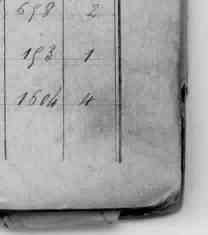 698 2
193 1
1604 4